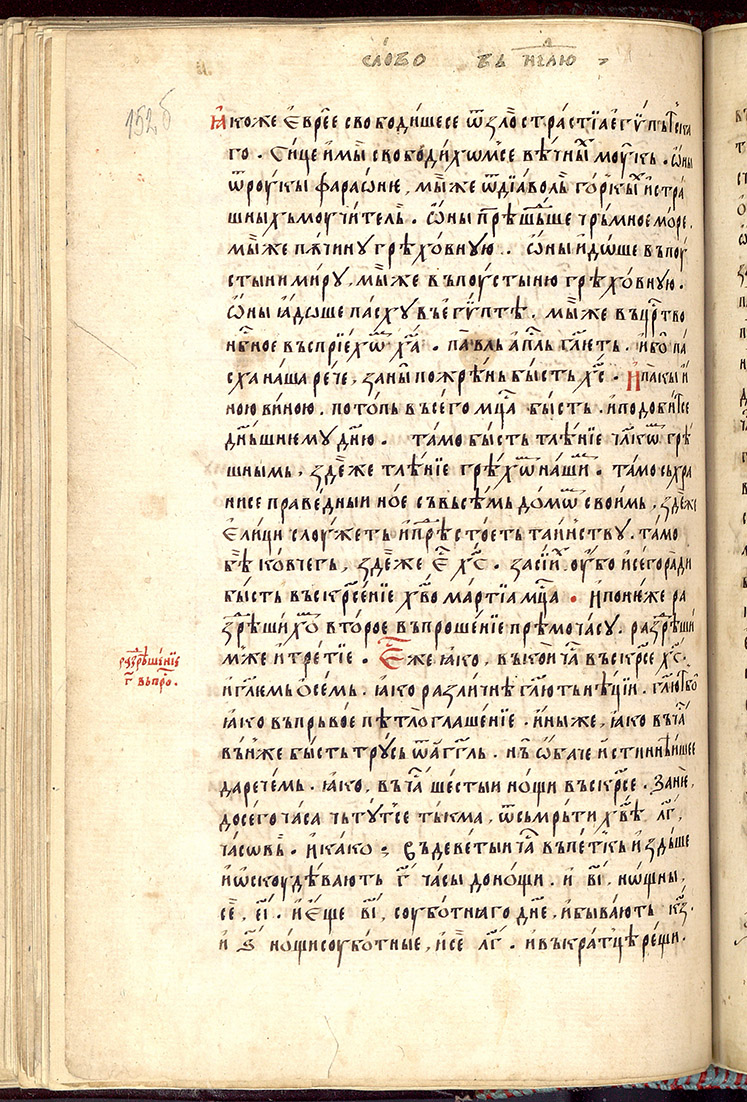 слово въ нⷣелю
152б
Ꙗкоже Еврѐе свободи́шесе ѿ ꙁло страстїа егѵ́пътⷭ҇ка
го. Сице и҆ мы̀ свободи́хомсе вѣ́чныⷯ моу́къ. ѡ҆ны
ѿ роу́кы фараѡ́нѥ, мы́же ѿ дїа́волъ го́рⸯкыⷯ и стра
шныхъ моучи́тель. ѡ҆ны прѣшⸯдъше чръмное мо́ре,
мы́же пꙋчину грѣхо́вную.. ѡ҆ны идо́ше въ поу
стыни миру, мы́же въ поустыню грѣхо́вную.
ѡ҆ны ꙗ҆до́ше пасху въ егѵ́птѣ. мы́же въ цр҃тво
нб҃ное въспрїехѡⷨ х҃а. па́влъ ап҃лъ гл҃ѥть. ибо па́
сха на́ша рече, ꙁа ны̀ пожрѣ́нь бы́сть х҃с. И па́кы и҆
ною ви́ною. пото́пь въ се́го мц҃а бы́сть. и подоби́тсе
дн҃ьшнѥму дн҃ю. та́мо бысть тлѣ́нїе чл҃кѡⷨ грѣ́
шнымь, ꙁдѐже тлѣ́нїе грѣхѡⷨ на́шиⷨ. та́мо съхра
нисе праве́дный но́е съ въсѣ́мь до́мѡⷨ свои́мь, ꙁдѐже
Ели́ци слоу́жеть и прѣ́стоеть та́инству. та́мо
бѣ̀ ко́вчегъ, ꙁдѐже е҃ х҃с. ꙁа сїиⷯ оу҆бо и сего ра́ди
бы́сть въскрⷭ҇е́нїе хв҃о ма́ртїа мц҃а. И поне́же ра
ꙁрѣши́хѡⷨ вто́рое въпроше́нїе прѣмо часу. раꙁрѣши́
мже и тре́тїе. Еже ꙗко, въ кои чⷭ҇а въскрⷭ҇е х҃с.
раꙁрѣше́нїе
г҃ въпро.
и гл҃ѥмь о́семь. ꙗко разли́чнѣ гл҃ють нѣ́цїи. гл҃ють бо
ꙗко въ прьво́е пѣтлоглаше́нїе. ины́же, ꙗко въ чⷭ҇а
вън́же бы́сть тру́сь ѿ агг҃лъ. нъ ѡ҆ба́че и҆́стиннѣишее
да рече́мь. ꙗко, въ чⷭ҇а ше́стыи но́щи въскрⷭ҇е. Зане́,
до се́го ча́са чьту́тсе тъкма, ѿ съмръти хв҃ѣ лг҃,
часовѣ. и ка́ко; въ деве́тыи чⷭ҇а въ пе́тькь и҆ꙁдъше
и ѡ҆скоудѣва́ють г҃ ча́сы до но́щи. и в҃і, нѡ́щны,
сѐ. е҃і. и Е́ще в҃і, соубо́тнаго днѐ, и быва́ють к҃ꙁ.
и ѕ҃ но́щи соубо́тные, и сѐ лг҃. и въкра́тцѣ ре́щи.